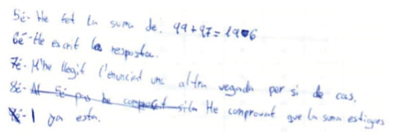 5é- He fet la suma de: 99+97=1906
6é- He escrit la resposta.
7é- M'he llegit l'enunciat una altra vegada per si de cas.
8é- He comprovat que la suma estigues
I ya esta.